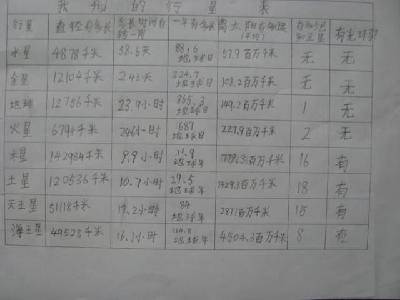 我们的行星表
行星 直径有多长 一年有多长 有光环吗
水星 4878千米 58.5天 88.6地球日 57.9百万千米 无 无
金星 12104千米 243天 224.7地球日 108.2百万千米 无 无
地球 12756千米 23.9小时 365.2地球日 149.2百万千米 1 无
火星 6794千米 24小时 687地球日 227.9百万千米 2 无
木星 142984千米 9.9小时 11.9地球年 百万千米 16 有
土星 120536千米 10.7小时 29.5地球年 百万千米 18 有
天王星 51118千米 17.2小时 84地球年 2871百万千米 15 有
海王星 49528千米 16.1小时 地球年 4504.3百万千米 8 有